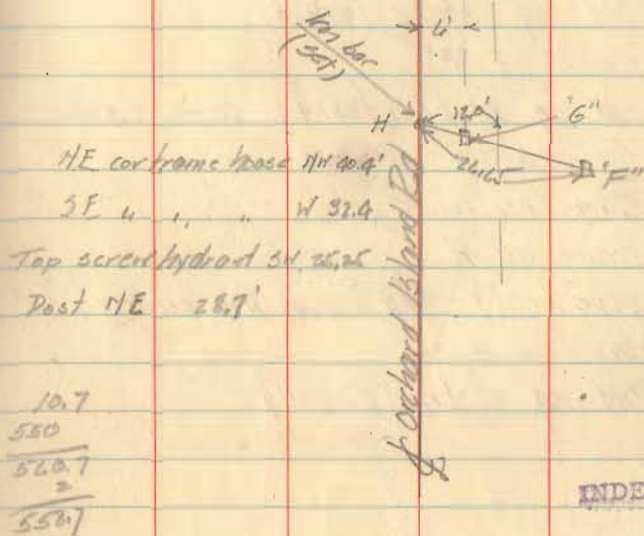 Km bar
(set)
4'
H 12.0' "G"
26.65 "F"
NE cor frame house NW 40.4'
SE " " " W 32.4
Top screw hydrant SW 25.25
Post NE 28.7'
℄ Orchard Island Rd
10.7
550
560.7
2
558.7
INDE